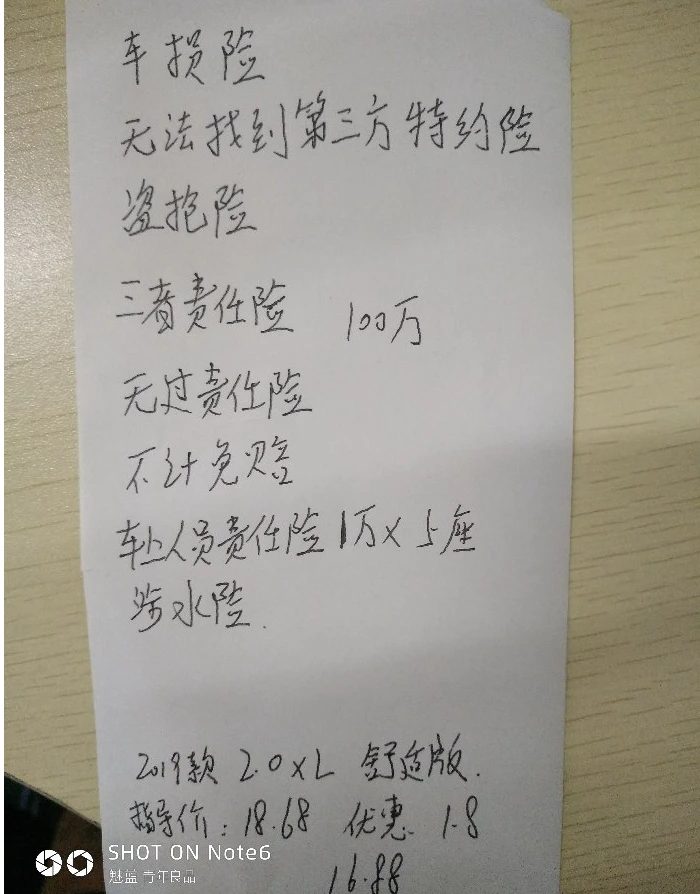 车损险
无法找到第三方特约险
盗抢险
三者责任险 100万
无过责任险
不计免赔
车上人员责任险1万×5座
涉水险.
2019款 2.0XL 舒适版.
指导价: 18.68 优惠 1.8
16.88
SHOT ON Note6
魅蓝 青年良品